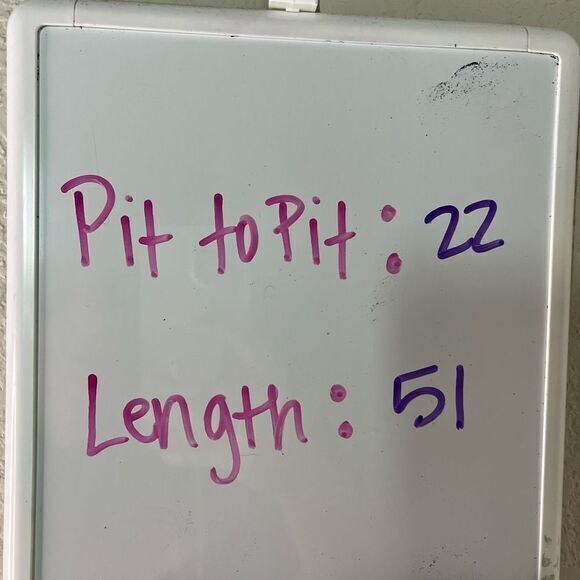 Pit to Pit: 22
Length: 51